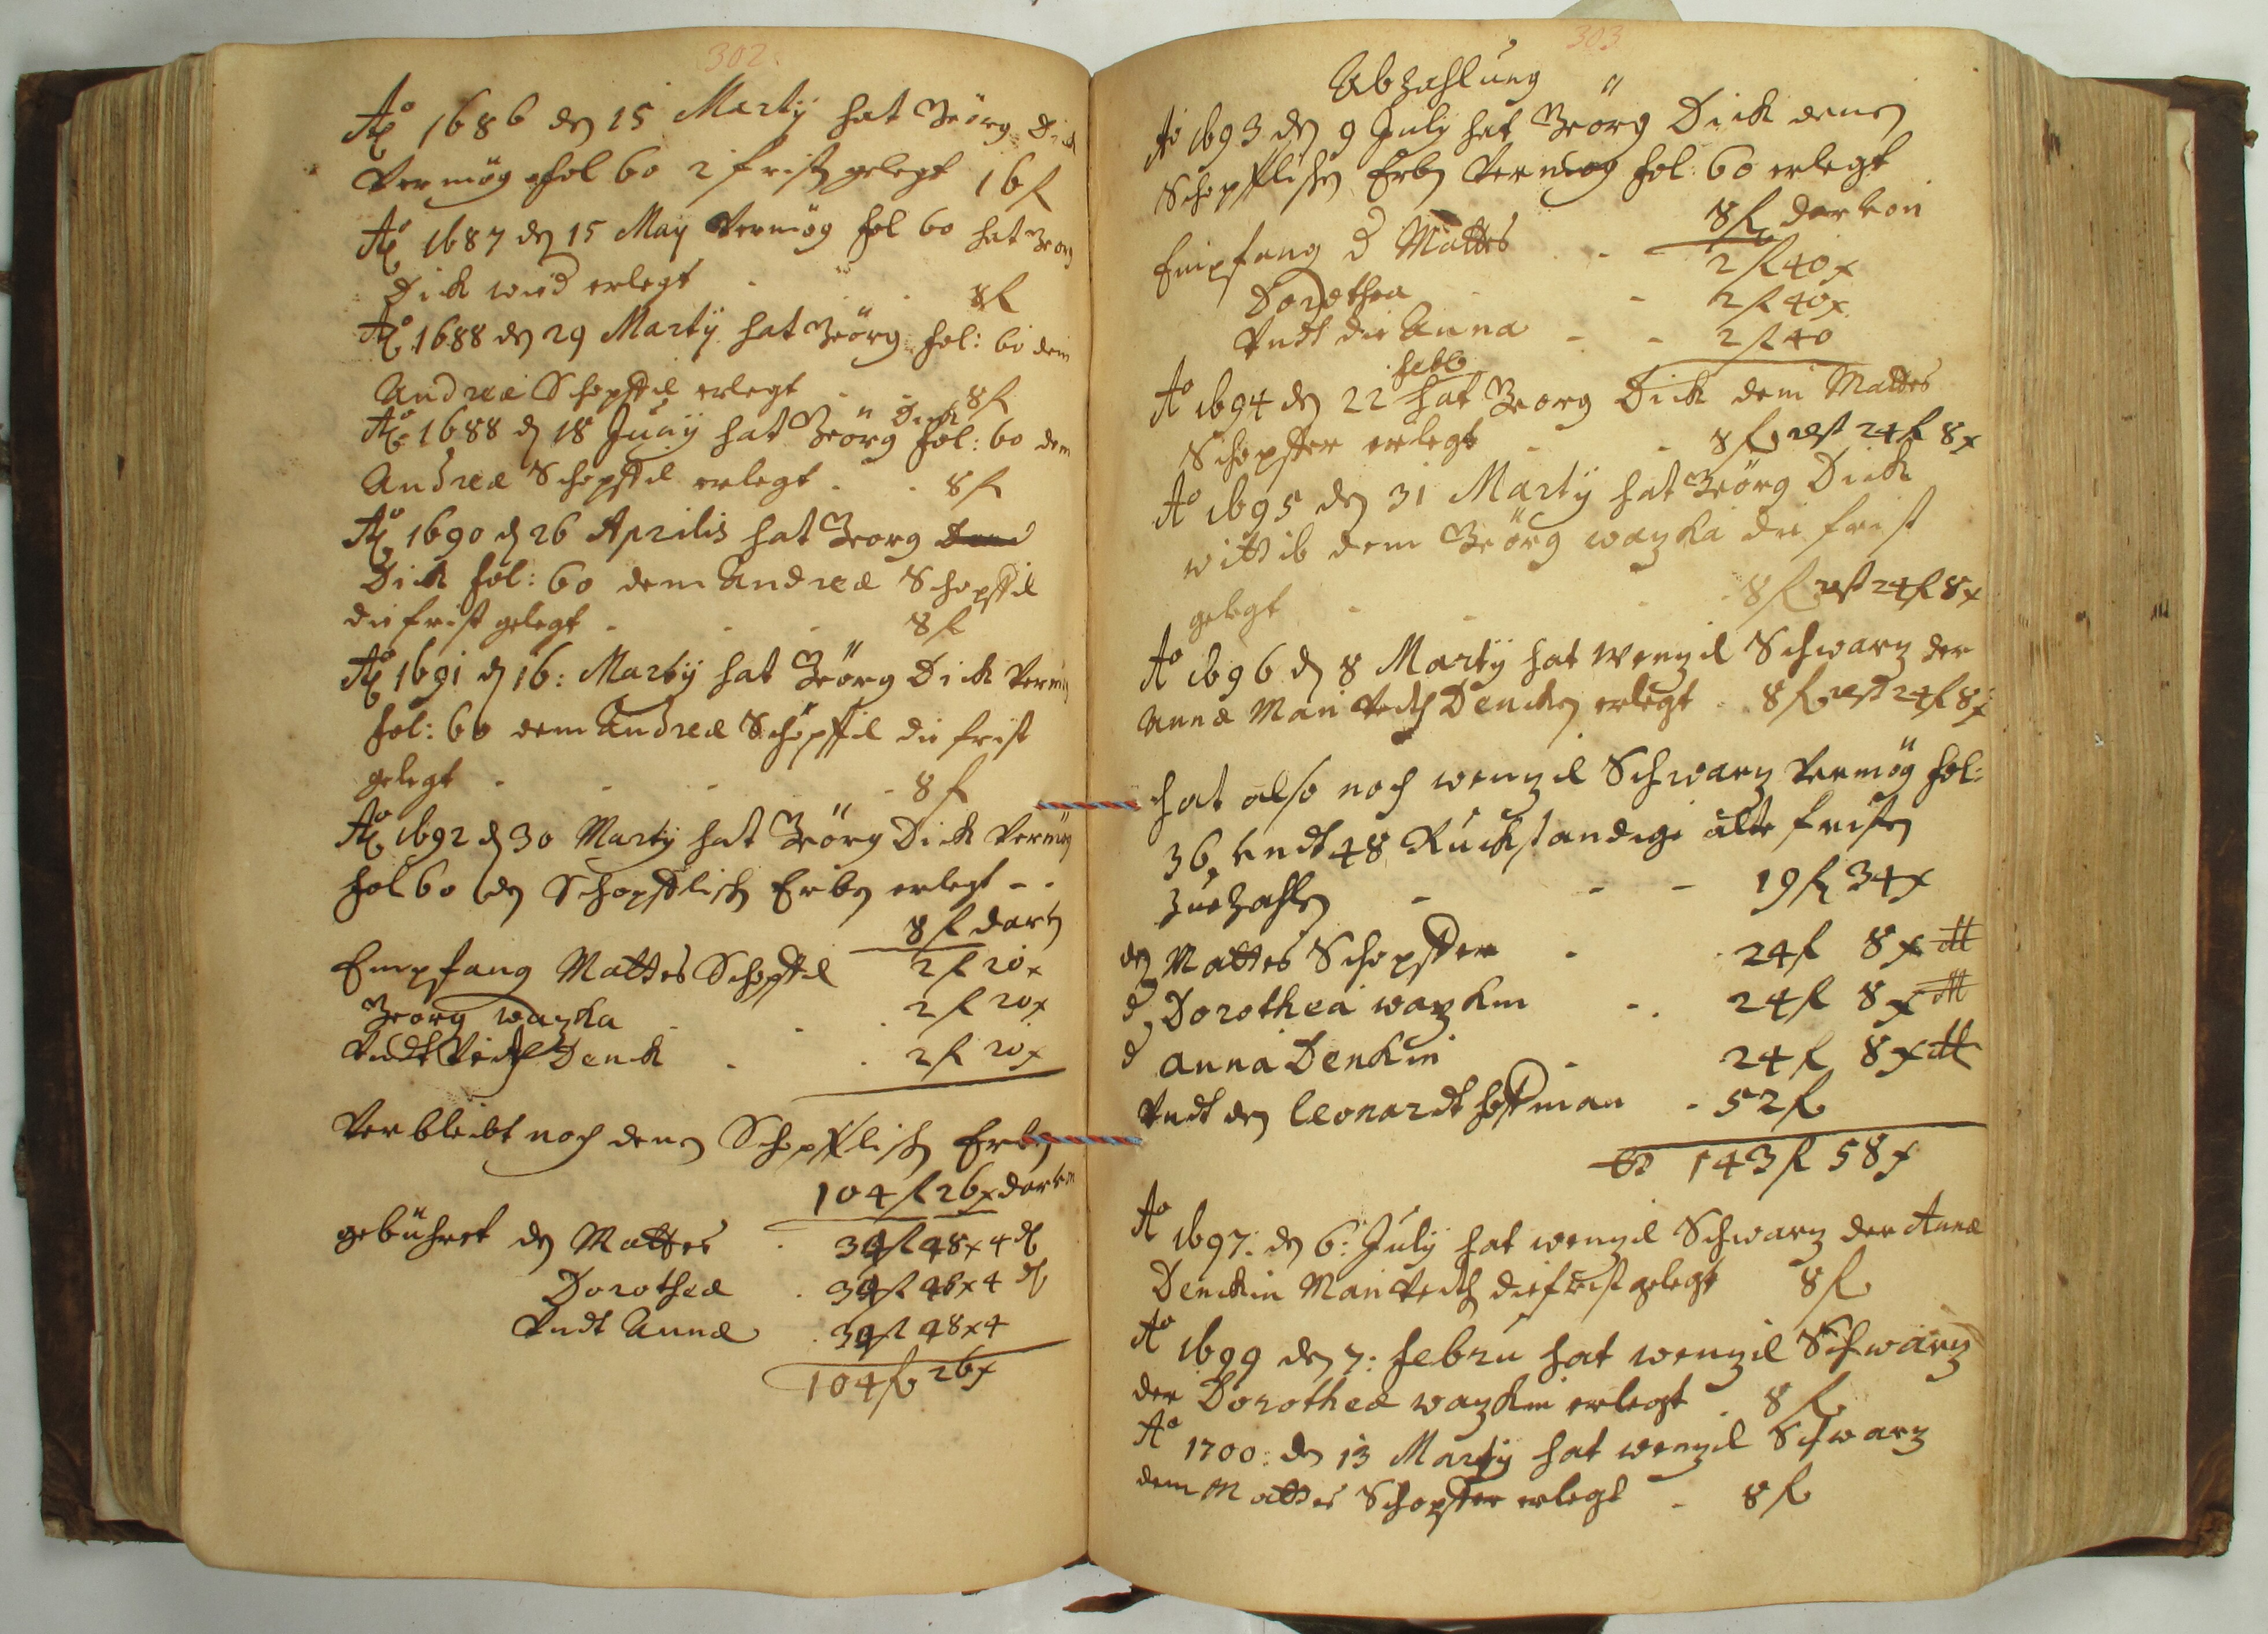 302
Aō 1686 den 15 Marty hat Geörg Dick
Vermög fol 60 2 frist gelegt 16 f
Aō 1687 den 15 May Vermög fol 60 hat Georg
Dick wid erlegt 8 f
Aō 1688 den 29 Martÿ hat Geörg fol: 60 dem
Andreæ Schopffel erlegt 8 f
Dick
Aō 1688 d 18 Junÿ hat Geörg fol: 60 dem
Andreæ Schopffel erlegt 8 f
Aō 1690 d 26 Aprilis hat Georg
Dick fol: 60 dem Andreæ Schopffel
die frist gelegt 8 f
Aō 1691 d 16: Martÿ hat Geörg Dick Vermög
fol: 60 dem Andreæ Schöpffel die frist
gelegt 8 f
Aō 1692 d 30 Marty hat Geörg Dick Vermög
fol 60 den Schopfflisch Erben erlegt
8 f
Empfang Mattes Schopffel 2 f 20 x
Georg wazka 2 f 20 x
Undt Veith Denck 2 f 20 x
Verbleibt noch denen Schopfflisch Erben
104 f 26 x darvon
gebühret den Mattes 34 f 48 x 4 d
Dorothea 34 f 48 x 4 d
Undt Annæ 34 f 48 x 4
104 f 26 x
303
Abzahlung
Aō 1693 den 9 July hat Geörg Dick denen
Schopfflischen Erben Vermög fol: 60 erlegt
8 f darvon
Empfang d Mattes 2 f 40 x
Dorothea 2 f 40 x
Undt die Anna 2 f 40
febb
Aō 1694 den 22 hat Georg Dick dem Mattes
Schopffer erlegt 8 f rest 24 f 8 x
Aō 1695 den 31 Martÿ hat Geörg Dick
wittib dem Geörg wazka die frist
gelegt 8 f rest 24 f 8 x
Aō 1696 d 8 Martÿ hat Wenzel Schwarz der
Annæ Man Veith Dencken erlegt 8 f rest 24 f 8 x
hat also noch wenzel Schwarz Vermög fol:
36 undt 48 Ruckstandige alte fristen
Zuezahlen 19 f 34 x
den Mattes Schopffer 24 f 8 x
d Dorothea wazkin 24 f 8 x
d Anna Denkin 24 f 8 x
Undt den Leonardt hoffman 52 f
143 f 58 x
Aō 1697: den 6: July hat wenzel Schwarz der Annæ
Denckin Man Veith die frist gelegt 8 f
Aō 1699 den 7: Febru hat wenzel Schwarz
der Dorotheæ wazkin erlegt 8 f
Aō 1700: den 13 Martÿ hat wenzel Schwarz
dem Mattes Schopffer erlegt 8 f